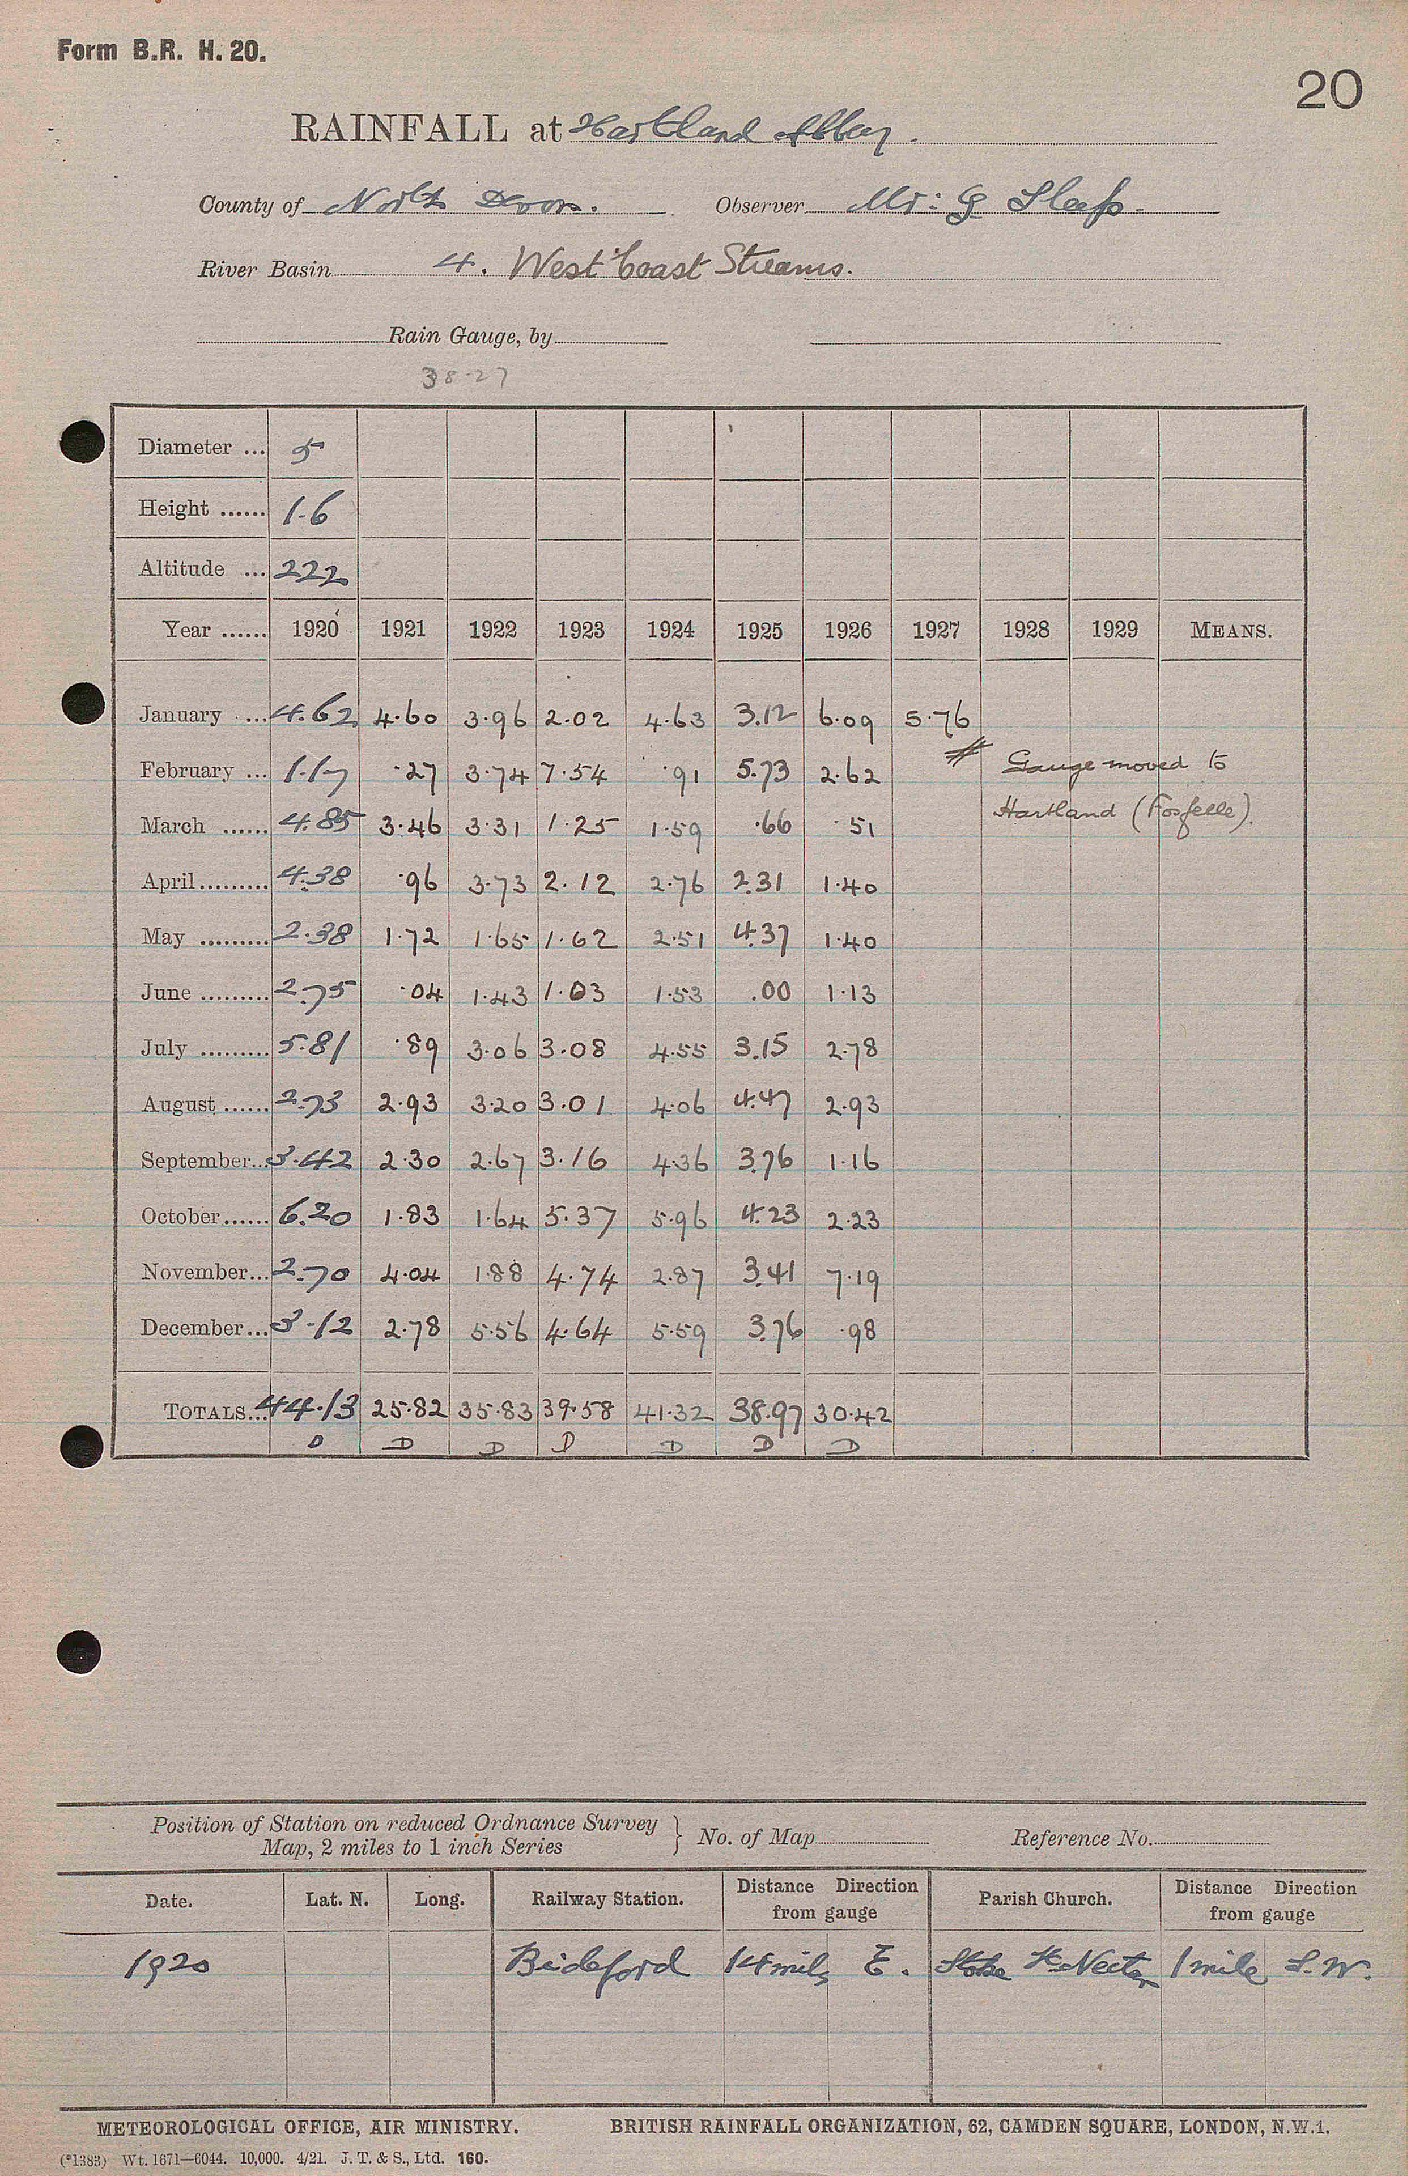 Form B.R. H. 20.
20
RAINFALL at Hartland Abbey.
County of North Devon. Observer Mr: G Sleep
River Basin 4. West Coast Streams.
Rain Gauge, by
38.27
Diameter ... 5
Height ...... 1.6
Altitude ... 222
Year ...... 1920 1921 1922 1923 1924 1925 1926 1927 1928 1929 MEANS.
January ... 4.62 4.60 3.96 2.02 4.63 3.12 6.09 5.76
February ... 1.17 .27 3.74 7.54 .91 5.73 2.62 # Gauge moved to
March ...... 4.85 3.46 3.31 1.25 1.59 .66 .51 Hartland (Fosfelle).
April ......... 4.38 .96 3.73 2.12 2.76 2.31 1.40
May ......... 2.38 1.72 1.65 1.62 2.51 4.37 1.40
June ......... 2.75 .04 1.43 1.03 1.53 .00 1.13
July ......... 5.81 .89 3.06 3.08 4.55 3.15 2.78
August ...... 2.73 2.93 3.20 3.01 4.06 4.47 2.93
September... 3.42 2.30 2.67 3.16 4.36 3.76 1.16
October...... 6.20 1.83 1.64 5.37 5.96 4.23 2.23
November... 2.70 4.04 1.88 4.74 2.87 3.41 7.19
December... 3.12 2.78 5.56 4.64 5.59 3.76 .98
TOTALS... 44.13 25.82 35.83 39.58 41.32 38.97 30.42
D D D D D D D
Position of Station on reduced Ordnance Survey
Map, 2 miles to 1 inch Series } No. of Map Reference No.
Date. Lat. N. Long. Railway Station. Distance Direction from gauge Parish Church. Distance Direction from gauge
1920 Bideford 14 miles E. Stoke St Necten 1 mile S.W.
METEOROLOGICAL OFFICE, AIR MINISTRY. BRITISH RAINFALL ORGANIZATION, 62, CAMDEN SQUARE, LONDON, N.W.1.
(*1383) Wt. 1671—6044. 10,000. 4/21. J. T. & S., Ltd. 160.